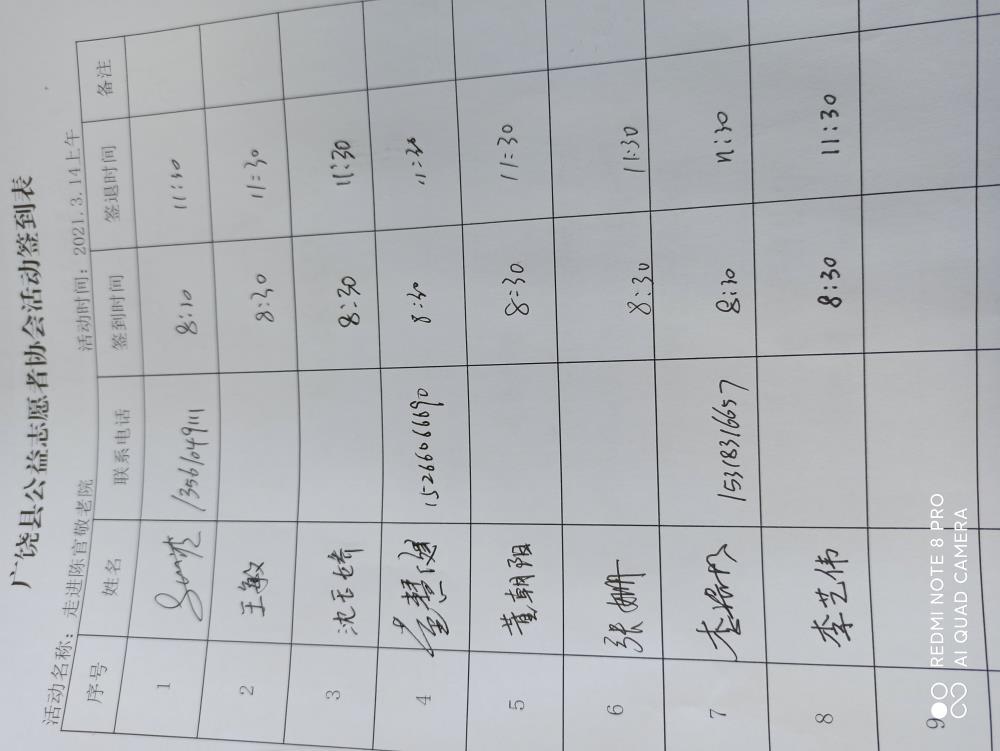 广饶县公益志愿者协会活动签到表
活动名称：走进陈官敬老院 活动时间：2021.3.14上午
序号 姓名 联系电话 签到时间 签退时间 备注
1 13561049111 8:10 11:30
2 王敏 8:30 11:30
3 沈玉琦 8:30 11:30
4 董慧健 15266066690 8:30 11:30
5 黄朝阳 8:30 11:30
6 张姗 8:30 11:30
7 李 15318316657 8:30 11:30
8 李艺伟 8:30 11:30
9
REDMI NOTE 8 PRO
AI QUAD CAMERA